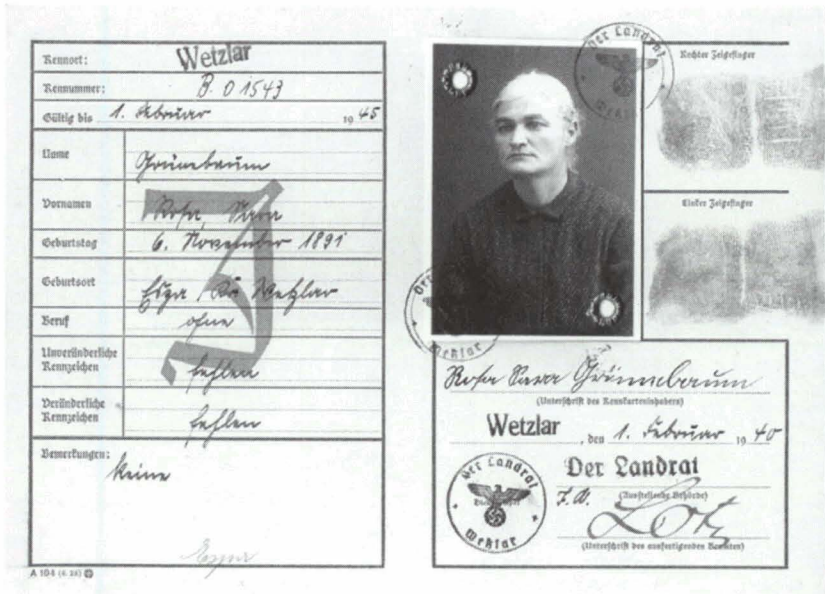 Kennort: Wetzlar
Kennummer: B. 01543
Gültig bis 1. Februar 19 45
Name Grünebaum
Vornamen Rosa, Sara
J
Geburtstag 6. November 1891
Geburtsort Espa, Krs Wetzlar
Beruf ohne
Unveränderliche
Kennzeichen fehlen
Veränderliche
Kennzeichen fehlen
Bemerkungen:
keine
Espa
A 104
Der Landrat
Rechter Zeigefinger
Linker Zeigefinger
Wetzlar
Rosa Sara Grünebaum
(Unterschrift des Kennkarteninhabers)
Wetzlar, den 1. Februar 19 40
Der Landrat
Wetzlar
Der Landrat
J. A. (Ausstellende Behörde)
Lotz
(Unterschrift des ausfertigenden Beamten)